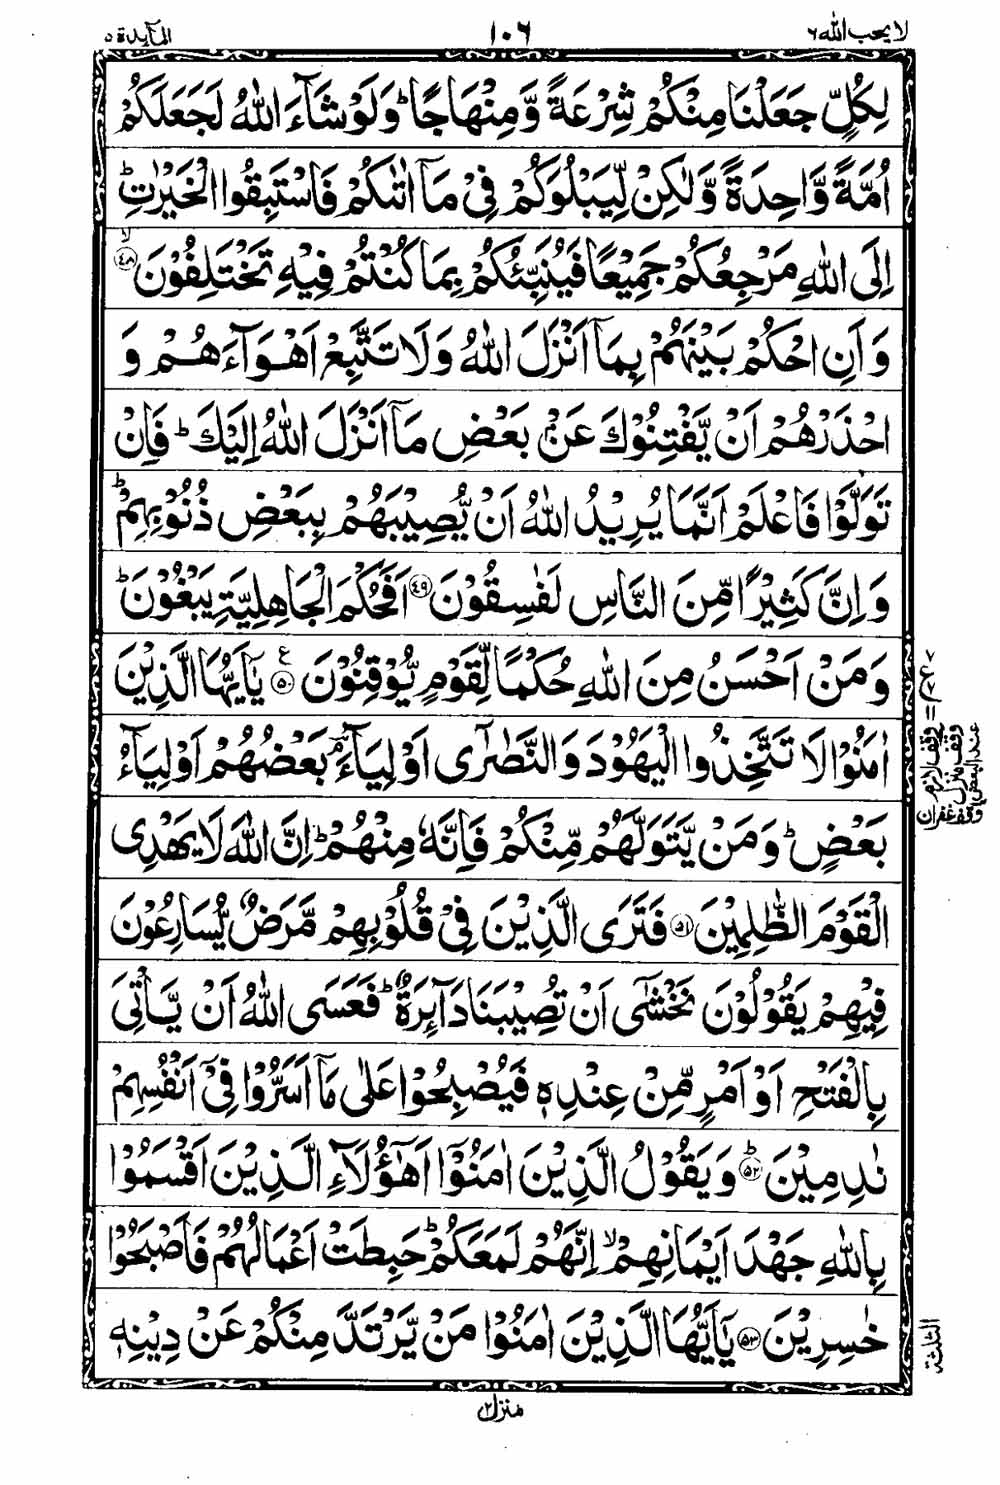 لا يحب الله ٦
١٠٦
المآىدة ٥
لِكُلٍّ جَعَلْنَا مِنْكُمْ شِرْعَةً وَّ مِنْهَاجًا ؕ وَ لَوْ شَآءَ اللّٰهُ لَجَعَلَكُمْ
اُمَّةً وَّاحِدَةً وَّ لٰكِنْ لِّيَبْلُوَكُمْ فِیْ مَاۤ اٰتٰىكُمْ فَاسْتَبِقُوا الْخَيْرٰتِ ؕ
اِلَى اللّٰهِ مَرْجِعُكُمْ جَمِيْعًا فَيُنَبِّئُكُمْ بِمَا كُنْتُمْ فِيْهِ تَخْتَلِفُوْنَ ﴿٤٨﴾ ۙ
وَ اَنِ احْكُمْ بَيْنَهُمْ بِمَاۤ اَنْزَلَ اللّٰهُ وَ لَا تَتَّبِعْ اَهْوَآءَهُمْ وَ
احْذَرْهُمْ اَنْ يَّفْتِنُوْكَ عَنْۢ بَعْضِ مَاۤ اَنْزَلَ اللّٰهُ اِلَيْكَ ؕ فَاِنْ
تَوَلَّوْا فَاعْلَمْ اَنَّمَا يُرِيْدُ اللّٰهُ اَنْ يُّصِيْبَهُمْ بِبَعْضِ ذُنُوْبِهِمْ ؕ
وَ اِنَّ كَثِيْرًا مِّنَ النَّاسِ لَفٰسِقُوْنَ ﴿٤٩﴾ اَفَحُكْمَ الْجَاهِلِيَّةِ يَبْغُوْنَ ؕ
وَ مَنْ اَحْسَنُ مِنَ اللّٰهِ حُكْمًا لِّقَوْمٍ يُّوْقِنُوْنَ ﴿٥٠﴾ ع يٰۤاَيُّهَا الَّذِيْنَ
اٰمَنُوْا لَا تَتَّخِذُوا الْيَهُوْدَ وَ النَّصٰرٰۤى اَوْلِيَآءَ ۘؔ بَعْضُهُمْ اَوْلِيَآءُ
بَعْضٍ ؕ وَ مَنْ يَّتَوَلَّهُمْ مِّنْكُمْ فَاِنَّهٗ مِنْهُمْ ؕ اِنَّ اللّٰهَ لَا يَهْدِی
الْقَوْمَ الظّٰلِمِيْنَ ﴿٥١﴾ فَتَرَى الَّذِيْنَ فِیْ قُلُوْبِهِمْ مَّرَضٌ يُّسَارِعُوْنَ
فِيْهِمْ يَقُوْلُوْنَ نَخْشٰۤى اَنْ تُصِيْبَنَا دَآىِٕرَةٌ ؕ فَعَسَى اللّٰهُ اَنْ يَّاْتِیَ
بِالْفَتْحِ اَوْ اَمْرٍ مِّنْ عِنْدِهٖ فَيُصْبِحُوْا عَلٰى مَاۤ اَسَرُّوْا فِیْۤ اَنْفُسِهِمْ
نٰدِمِيْنَ ﴿٥٢﴾ ؕ وَ يَقُوْلُ الَّذِيْنَ اٰمَنُوْۤا اَهٰۤؤُلَآءِ الَّذِيْنَ اَقْسَمُوْا
بِاللّٰهِ جَهْدَ اَيْمَانِهِمْ ۙ اِنَّهُمْ لَمَعَكُمْ ؕ حَبِطَتْ اَعْمَالُهُمْ فَاَصْبَحُوْا
خٰسِرِيْنَ ﴿٥٣﴾ يٰۤاَيُّهَا الَّذِيْنَ اٰمَنُوْا مَنْ يَّرْتَدَّ مِنْكُمْ عَنْ دِيْنِهٖ
وقف لازم
وقف منزل
عند البعض
وقف غفران
الثلثة
منزل ٢